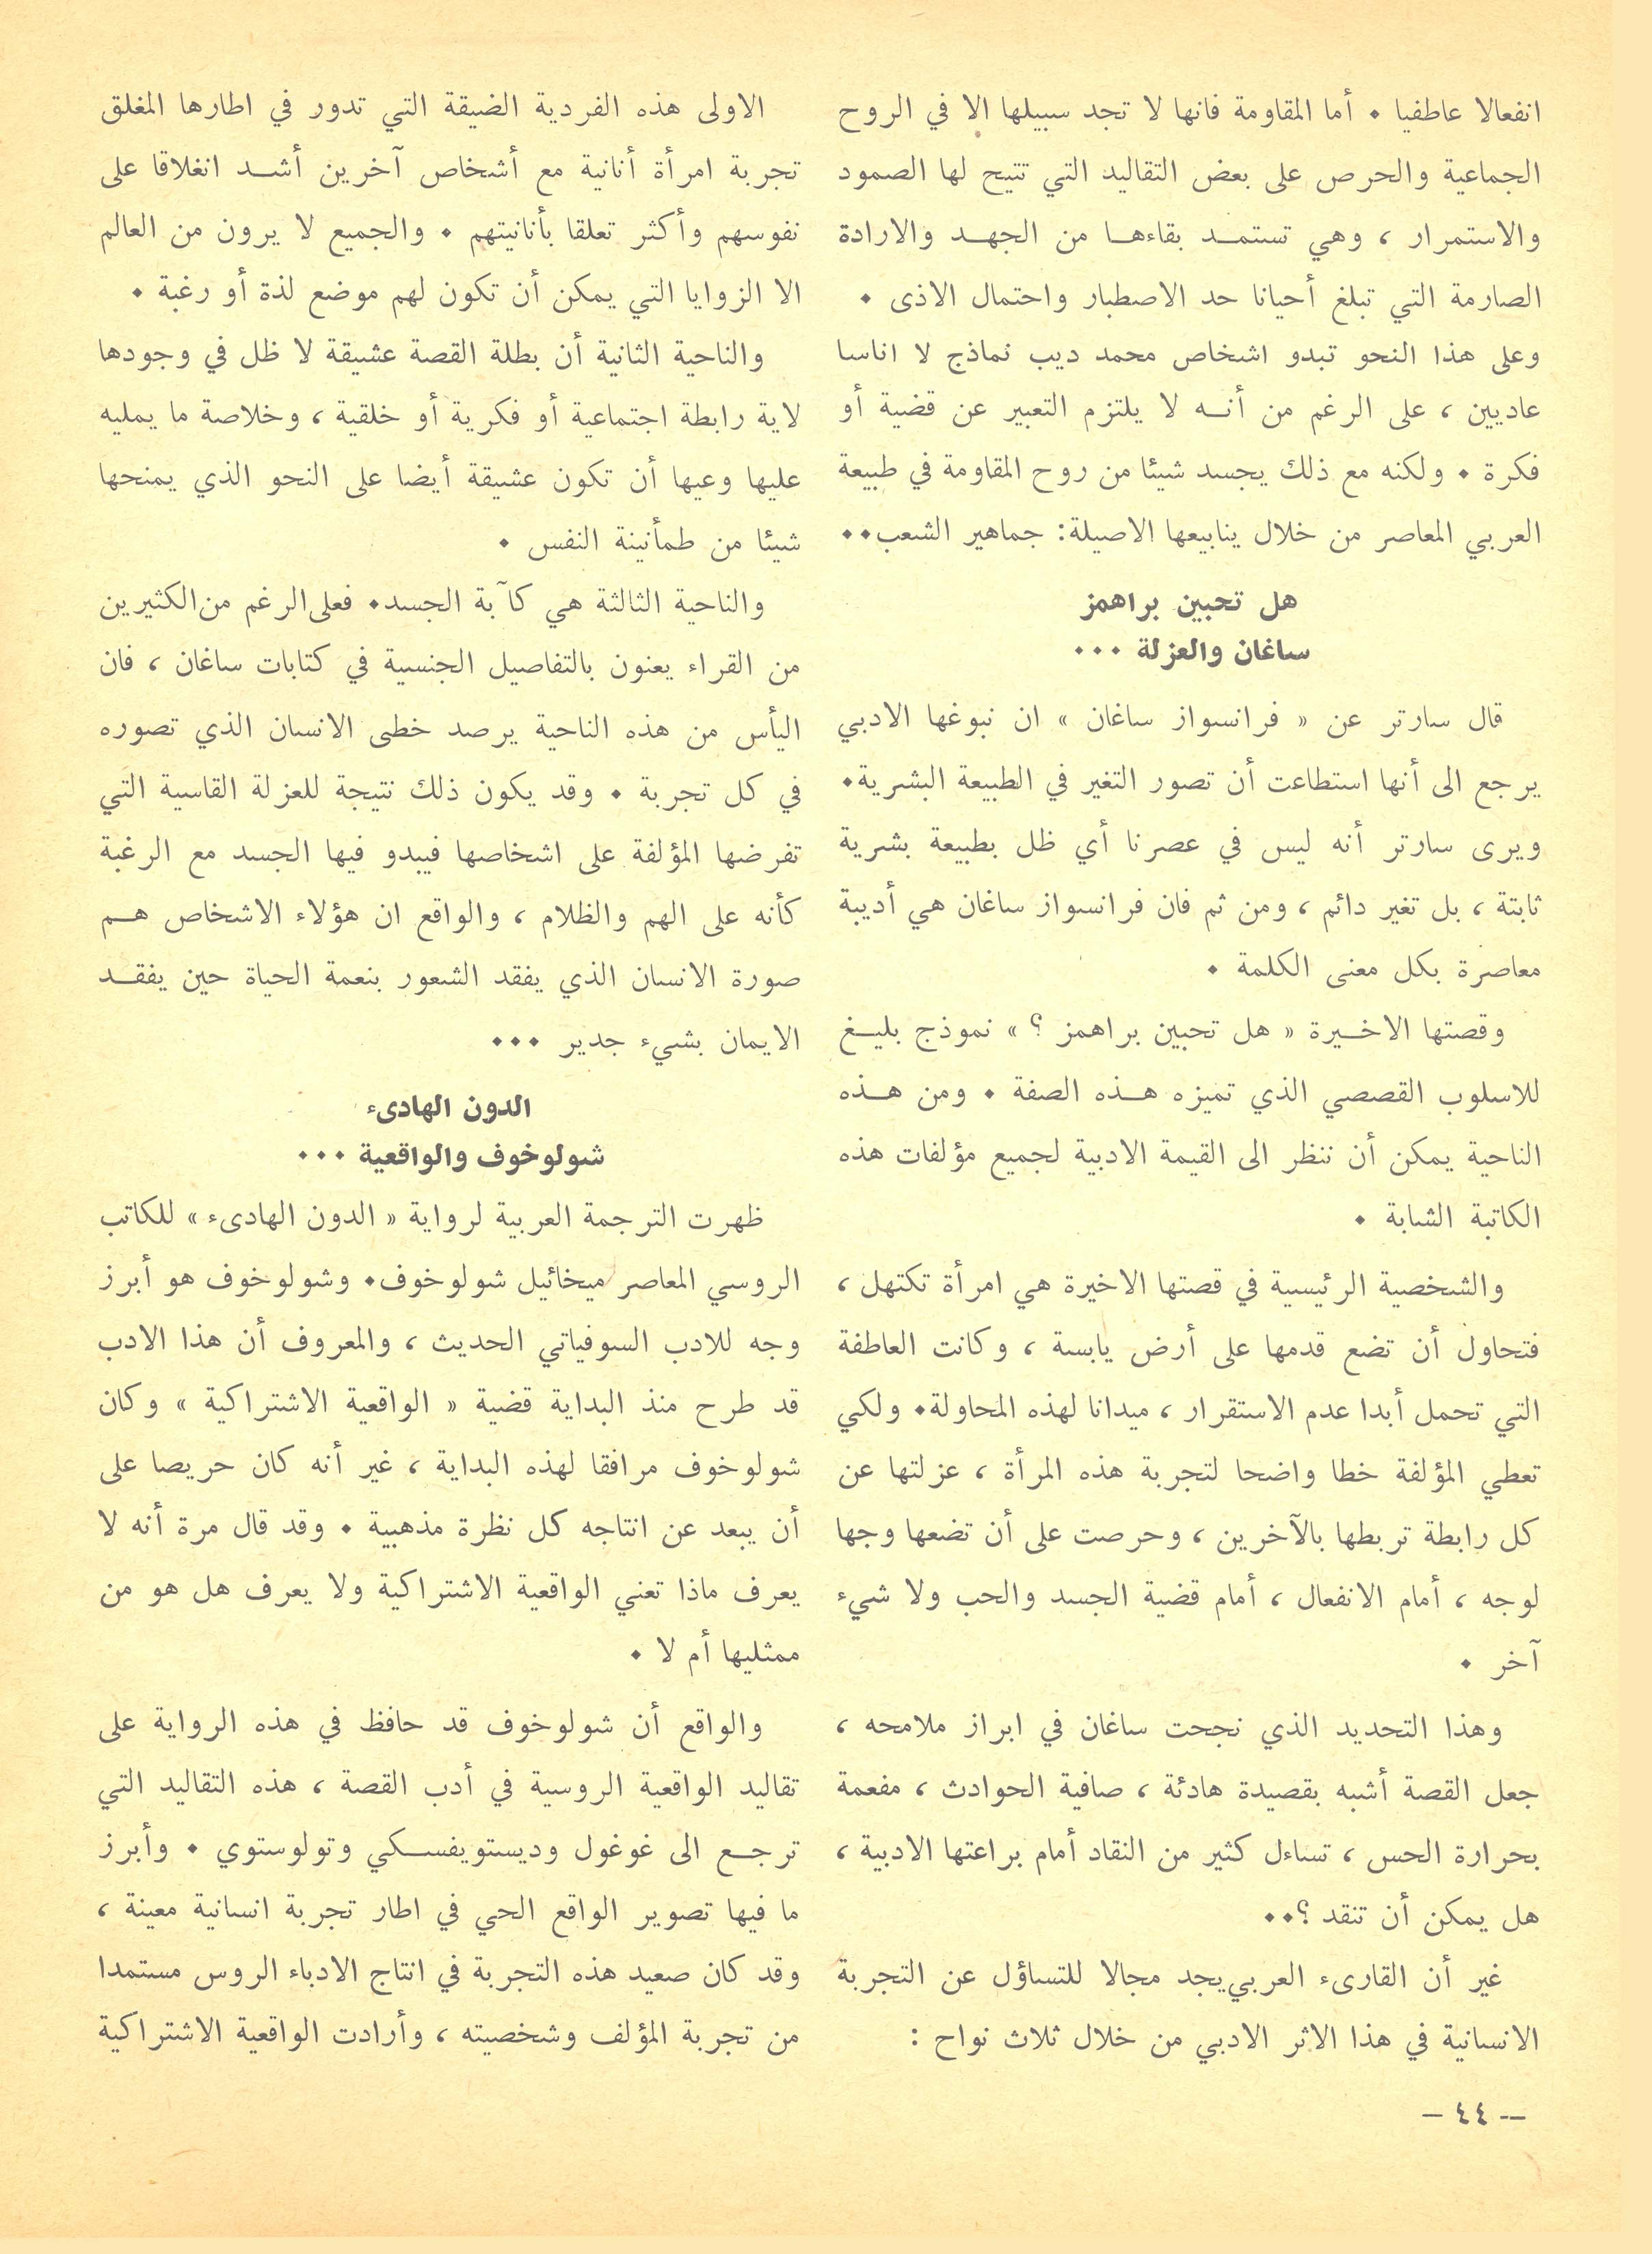 انفعالا عاطفيا . أما المقاومة فانها لا تجد سبيلها الا في الروح
الجماعية والحرص على بعض التقاليد التي تتيح لها الصمود
والاستمرار ، وهي تستمد بقاءها من الجهد والارادة
الصارمة التي تبلغ أحيانا حد الاصطبار واحتمال الاذى .
وعلى هذا النحو تبدو اشخاص محمد ديب نماذج لا اناسا
عاديين ، على الرغم من أنه لا يلتزم التعبير عن قضية أو
فكرة . ولكنه مع ذلك يجسد شيئا من روح المقاومة في طبيعة
العربي المعاصر من خلال ينابيعها الاصيلة: جماهير الشعب..
هل تحبين براهمز
ساغان والعزلة ...
قال سارتر عن « فرانسواز ساغان » ان نبوغها الادبي
يرجع الى أنها استطاعت أن تصور التغير في الطبيعة البشرية.
ويرى سارتر أنه ليس في عصرنا أي ظل بطبيعة بشرية
ثابتة ، بل تغير دائم ، ومن ثم فان فرانسواز ساغان هي أديبة
معاصرة بكل معنى الكلمة .
وقصتها الاخيرة « هل تحبين براهمز ؟ » نموذج بليغ
للاسلوب القصصي الذي تميزه هذه الصفة . ومن هذه
الناحية يمكن أن ننظر الى القيمة الادبية لجميع مؤلفات هذه
الكاتبة الشابة .
والشخصية الرئيسية في قصتها الاخيرة هي امرأة تكتهل ،
فتحاول أن تضع قدمها على أرض يابسة ، وكانت العاطفة
التي تحمل أبدا عدم الاستقرار ، ميدانا لهذه المحاولة. ولكي
تعطي المؤلفة خطا واضحا لتجربة هذه المرأة ، عزلتها عن
كل رابطة تربطها بالآخرين ، وحرصت على أن تضعها وجها
لوجه ، أمام الانفعال ، أمام قضية الجسد والحب ولا شيء
آخر .
وهذا التحديد الذي نجحت ساغان في ابراز ملامحه ،
جعل القصة أشبه بقصيدة هادئة ، صافية الحوادث ، مفعمة
بحرارة الحس ، تساءل كثير من النقاد أمام براعتها الادبية ،
هل يمكن أن تنقد ؟..
غير أن القارىء العربي يجد مجالا للتساؤل عن التجربة
الانسانية في هذا الاثر الادبي من خلال ثلاث نواح :
الاولى هذه الفردية الضيقة التي تدور في اطارها المغلق
تجربة امرأة أنانية مع أشخاص آخرين أشد انغلاقا على
نفوسهم وأكثر تعلقا بأنانيتهم . والجميع لا يرون من العالم
الا الزوايا التي يمكن أن تكون لهم موضع لذة أو رغبة .
والناحية الثانية أن بطلة القصة عشيقة لا ظل في وجودها
لاية رابطة اجتماعية أو فكرية أو خلقية ، وخلاصة ما يمليه
عليها وعيها أن تكون عشيقة أيضا على النحو الذي يمنحها
شيئا من طمأنينة النفس .
والناحية الثالثة هي كآبة الجسد. فعلى الرغم من الكثيرين
من القراء يعنون بالتفاصيل الجنسية في كتابات ساغان ، فان
اليأس من هذه الناحية يرصد خطى الانسان الذي تصوره
في كل تجربة . وقد يكون ذلك نتيجة للعزلة القاسية التي
تفرضها المؤلفة على اشخاصها فيبدو فيها الجسد مع الرغبة
كأنه على الهم والظلام ، والواقع ان هؤلاء الاشخاص هم
صورة الانسان الذي يفقد الشعور بنعمة الحياة حين يفقد
الايمان بشيء جدير ...
الدون الهادىء
شولوخوف والواقعية ...
ظهرت الترجمة العربية لرواية « الدون الهادىء » للكاتب
الروسي المعاصر ميخائيل شولوخوف. وشولوخوف هو أبرز
وجه للادب السوفياتي الحديث ، والمعروف أن هذا الادب
قد طرح منذ البداية قضية « الواقعية الاشتراكية » وكان
شولوخوف مرافقا لهذه البداية ، غير أنه كان حريصا على
أن يبعد عن انتاجه كل نظرة مذهبية . وقد قال مرة أنه لا
يعرف ماذا تعني الواقعية الاشتراكية ولا يعرف هل هو من
ممثليها أم لا .
والواقع أن شولوخوف قد حافظ في هذه الرواية على
تقاليد الواقعية الروسية في أدب القصة ، هذه التقاليد التي
ترجع الى غوغول وديستويفسكي وتولوستوي . وأبرز
ما فيها تصوير الواقع الحي في اطار تجربة انسانية معينة ،
وقد كان صعيد هذه التجربة في انتاج الادباء الروس مستمدا
من تجربة المؤلف وشخصيته ، وأرادت الواقعية الاشتراكية
— ٤٤ —